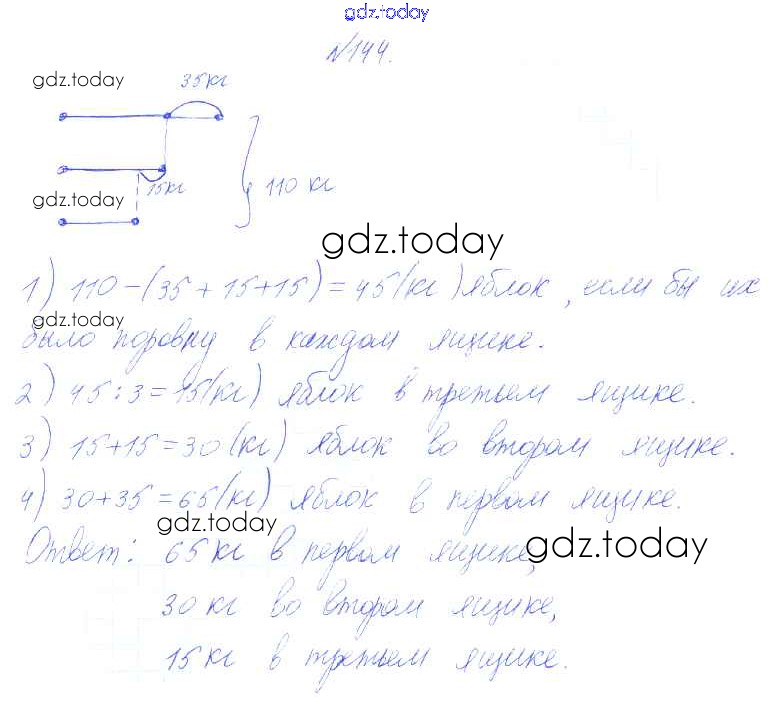 gdz.today
№144.
gdz.today
35кг
15кг
gdz.today
110 кг
gdz.today
1) 110-(35+15+15)=45(кг) яблок, если бы их
gdz.today
было поровну в каждом ящике.
2) 45:3=15(кг) яблок в третьем ящике.
3) 15+15=30(кг) яблок во втором ящике.
4) 30+35=65(кг) яблок в первом ящике.
gdz.today
Ответ: 65 кг в первом ящике,
gdz.today
30 кг во втором ящике,
15 кг в третьем ящике.